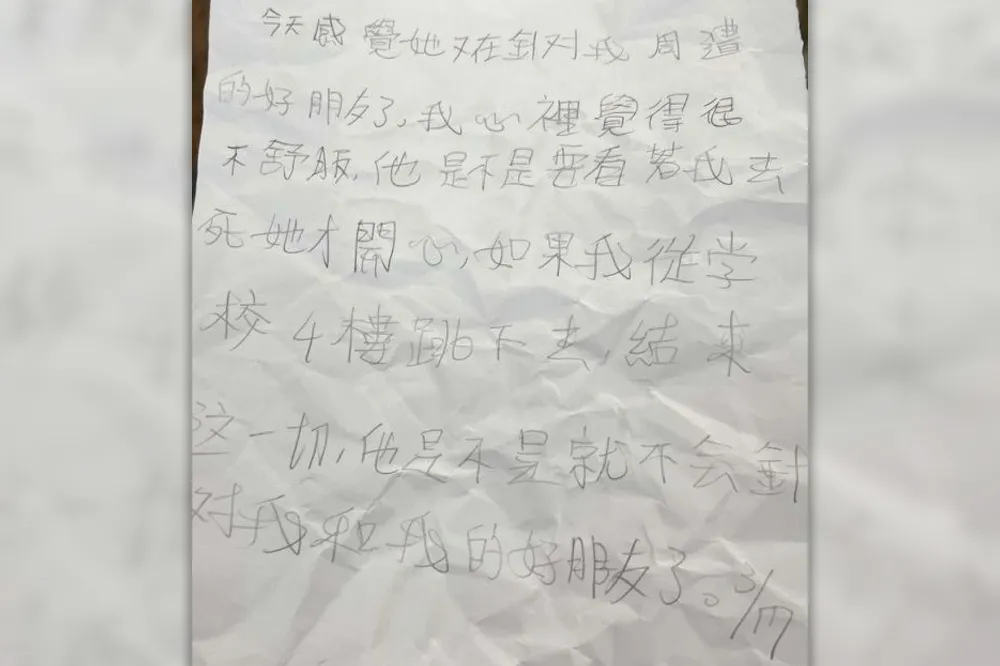 今天感覺她又在針对我周遭
的好朋友了,我心裡覺得很
不舒服,他是不是要看著我去
死她才開心,如果我從学
校4樓跳下去,結束
这一切,他是不是就不会針
对我和我的好朋友了。3/17